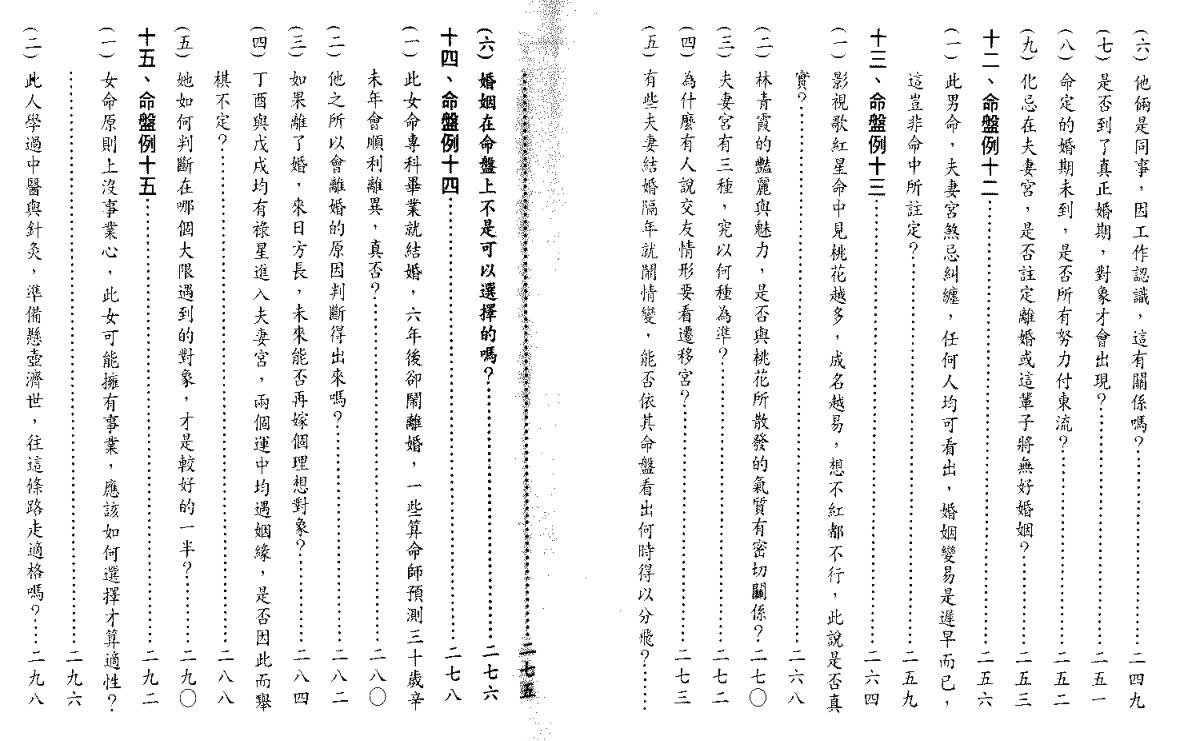 (六)他倆是同事，因工作認識，這有關係嗎？……二四九
(七)是否到了真正婚期，對象才會出現？……二五一
(八)命定的婚期未到，是否所有努力付東流？……二五二
(九)化忌在夫妻宮，是否註定離婚或這輩子將無好婚姻？……二五三
十二、命盤例十二……二五六
(一)此男命，夫妻宮煞忌糾纏，任何人均可看出，婚姻變易是遲早而已，
這豈非命中所註定？……二五九
十三、命盤例十三……二六四
(一)影視歌紅星命中見桃花越多，成名越易，想不紅都不行，此說是否真
實？……二六八
(二)林青霞的豔麗與魅力，是否與桃花所散發的氣質有密切關係？……二七〇
(三)夫妻宮有三種，究以何種為準？……二七二
(四)為什麼有人說交友情形要看遷移宮？……二七三
(五)有些夫妻結婚隔年就鬧情變，能否依其命盤看出何時得以分飛？……
……二七五
(六)婚姻在命盤上不是可以選擇的嗎？……二七六
十四、命盤例十四……二七八
(一)此女命專科畢業就結婚，六年後卻鬧離婚，一些算命師預測三十歲辛
未年會順利離異，真否？……二八〇
(二)他之所以會離婚的原因判斷得出來嗎？……二八二
(三)如果離了婚，來日方長，未來能否再嫁個理想對象？……二八四
(四)丁酉與戊戌均有祿星進入夫妻宮，兩個運中均遇姻緣，是否因此而舉
棋不定？……二八八
(五)她如何判斷在哪個大限遇到的對象，才是較好的一半？……二九〇
十五、命盤例十五……二九二
(一)女命原則上沒事業心，此女可能擁有事業，應該如何選擇才算適性？
……二九六
(二)此人學過中醫與針灸，準備懸壺濟世，往這條路走適格嗎？……二九八